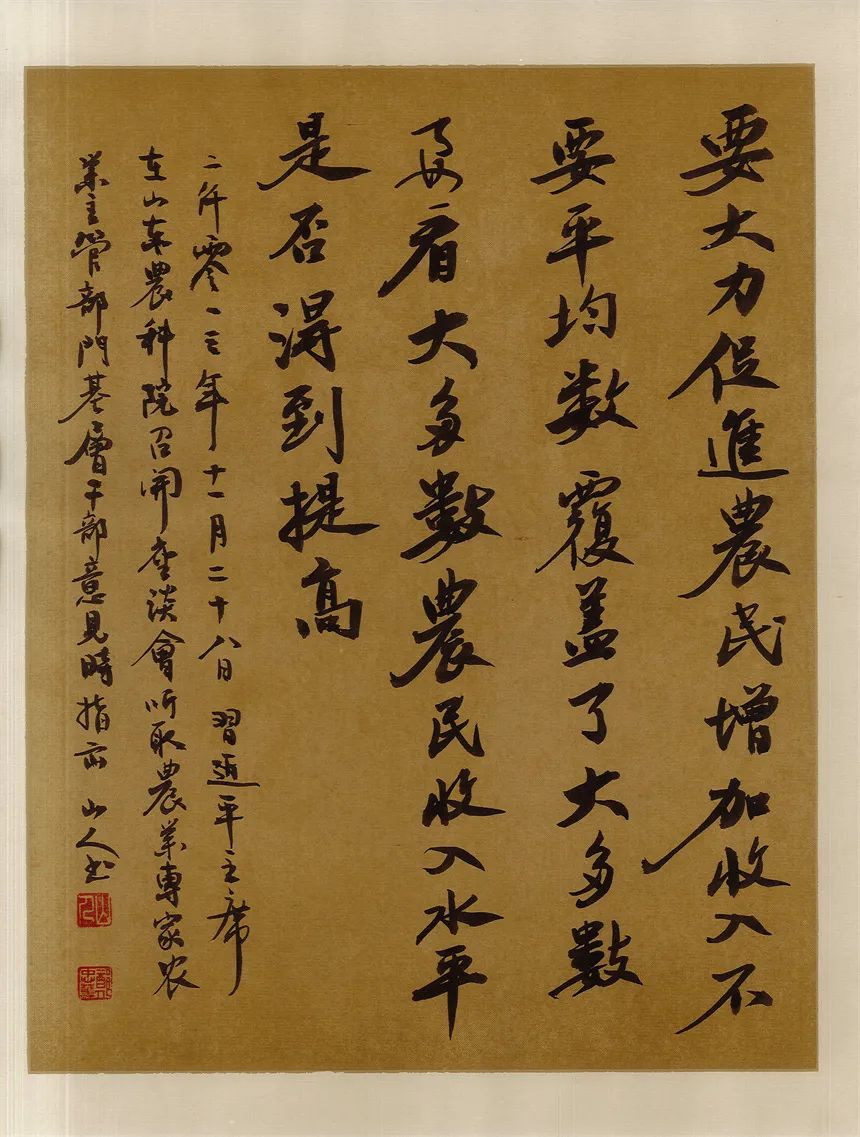 要大力促進農民增加收入不
要平均数覆盖了大多數
要看大多數農民收入水平
是否得到提高
二仟零一三年十一月二十八日 習近平主席
在山東農科院召開座談會听取農業專家农
業主管部門基層干部意見時指示 山人书
山人